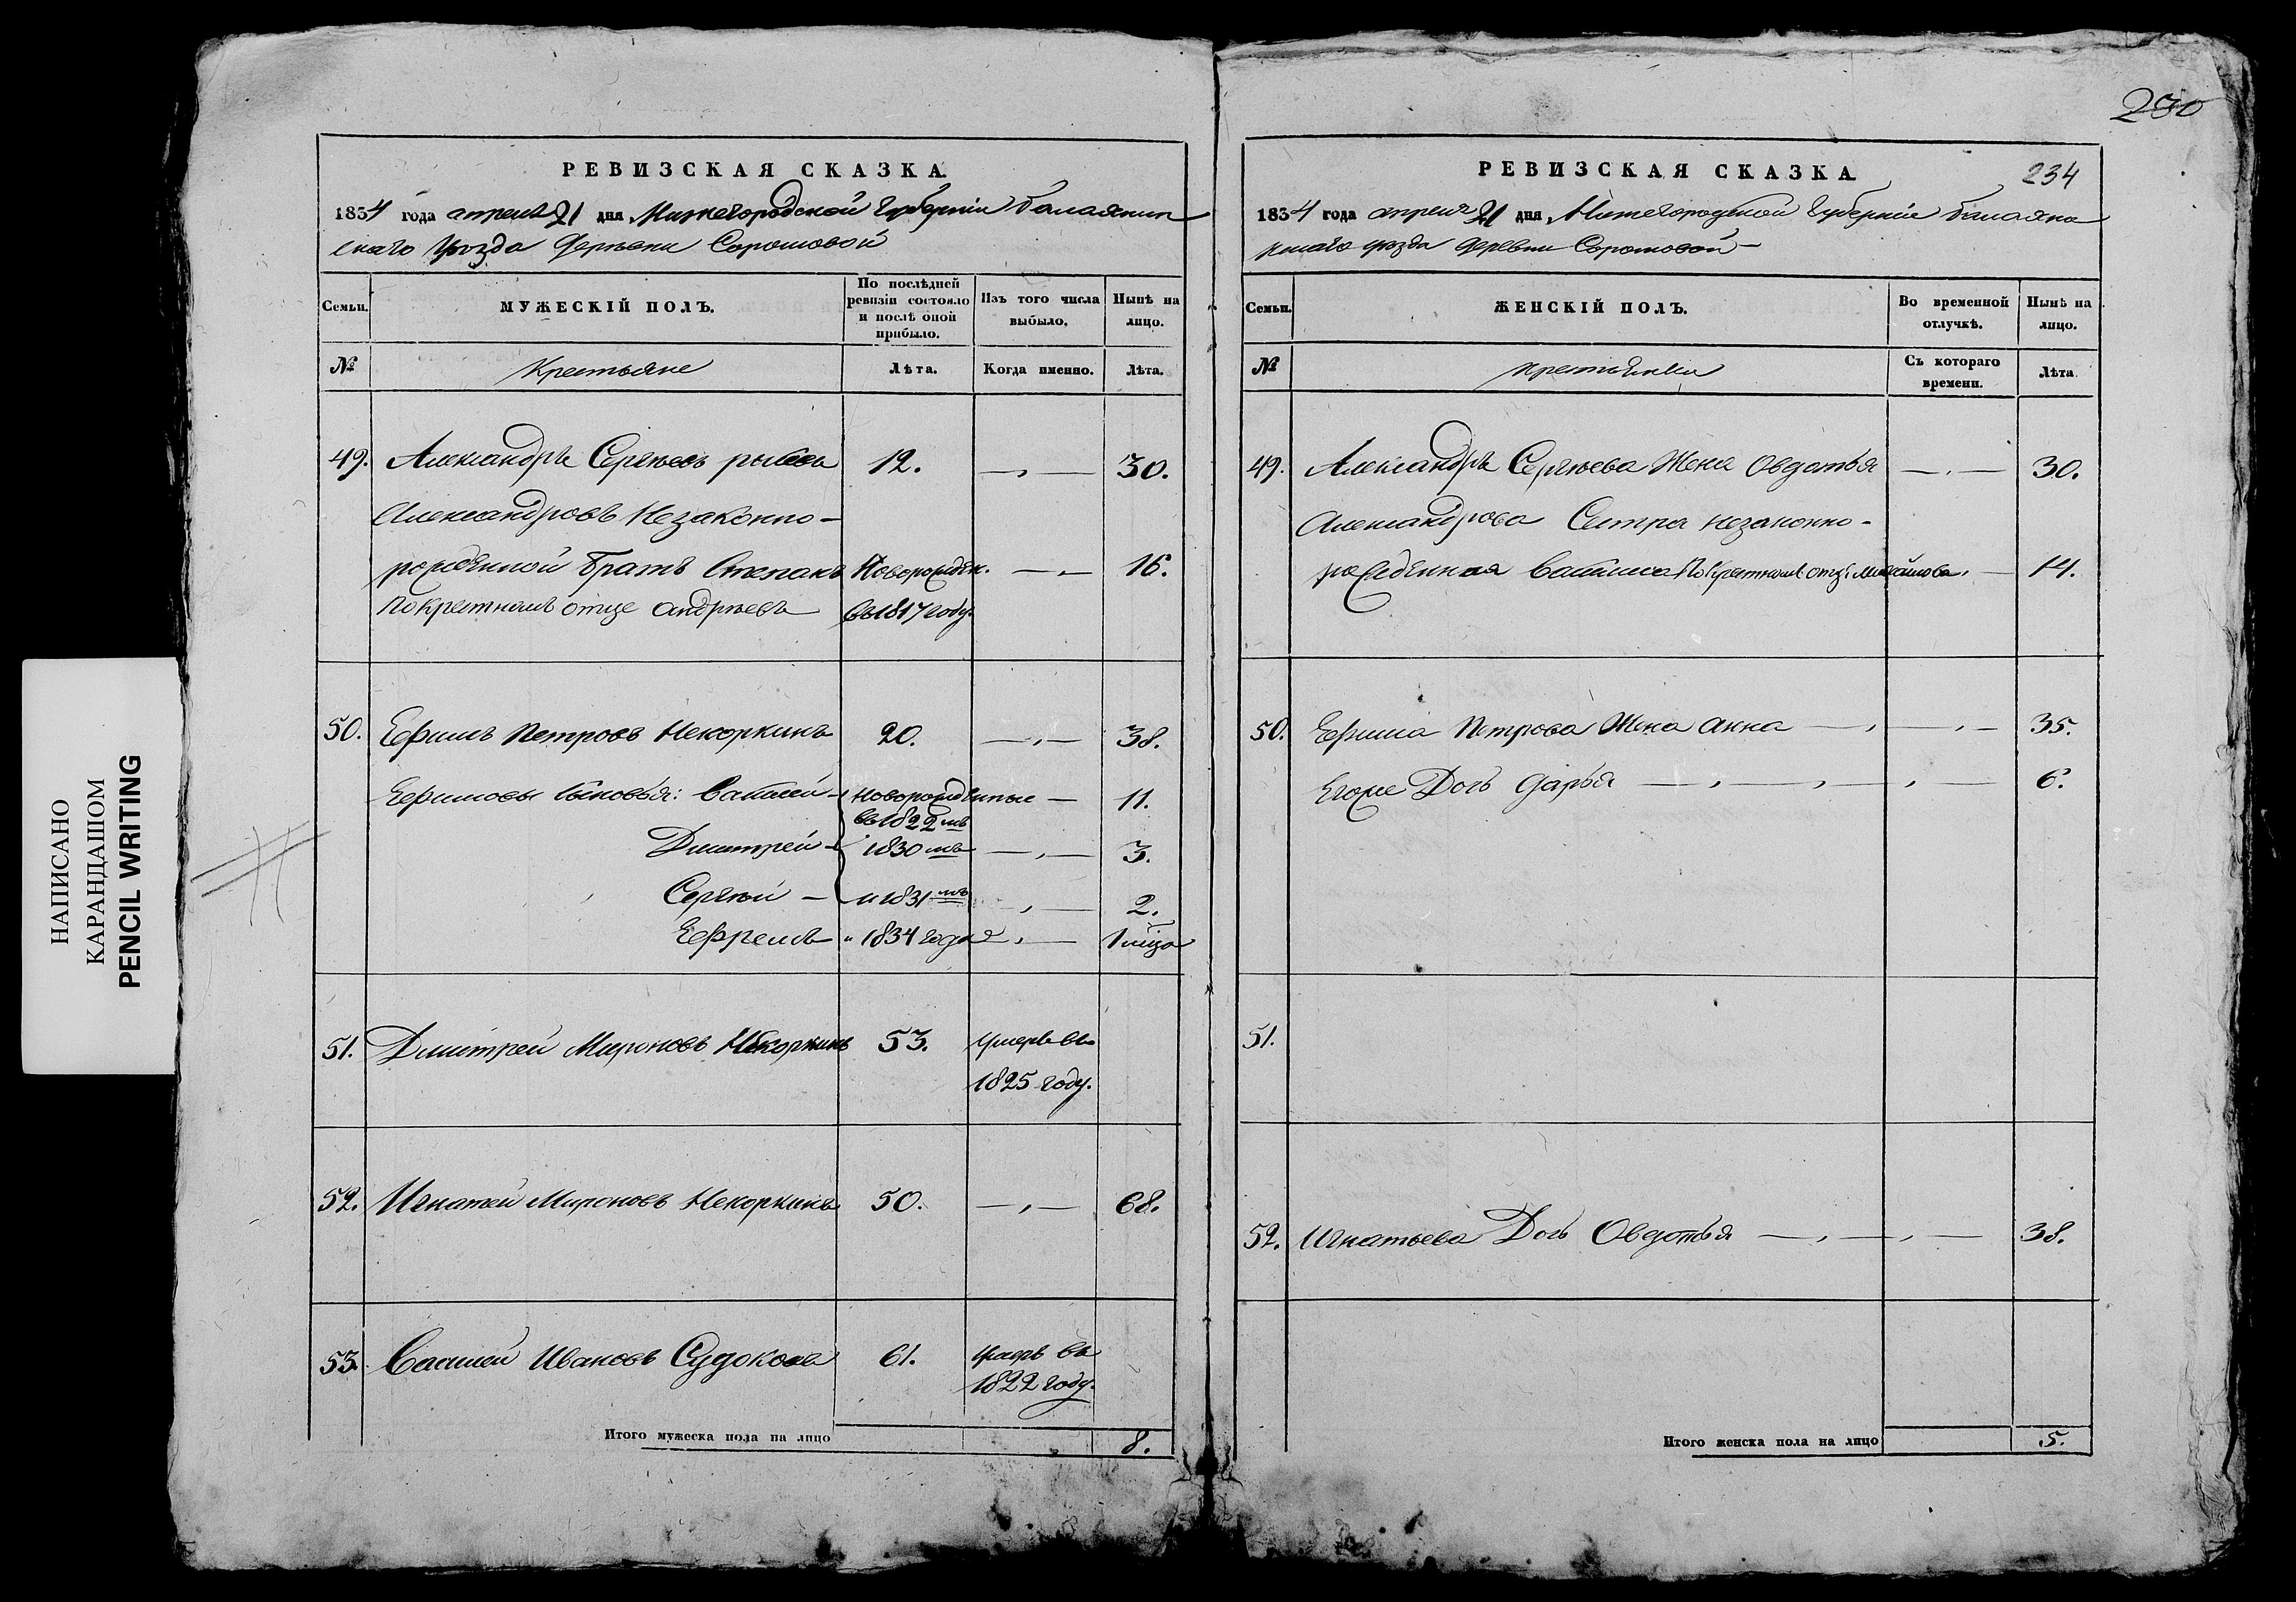 230
РЕВИЗСКАЯ СКАЗКА.
1834 года апреля 21 дня Нижегородской Губернiи балахнин
скаго Уѣзда деревни Сормовой
Семьи.
МУЖЕСКIЙ ПОЛЪ.
По послѣдней ревизiи состояло и послѣ оной прибыло.
Изъ того числа выбыло.
Нынѣ на лицо.
№
Крестьяне
Лѣта.
Когда именно.
Лѣта.
49. Александръ Сергѣевъ 12. 30.
Александровъ Незаконно-
рожденной братъ Степанъ Новорожден. 16.
По крестномъ отце андрѣевъ въ 1817 году.
50. Ефимъ Петровъ Некоркинъ 20. 38.
Ефимовы сыновья: Василей Новорожденные 11.
въ 1822мъ
Дмитрей 1830мъ 3.
Сергей и 1831мъ 2.
Ефремъ и 1834 года
51. Дмитрей Мироновъ Некоркинъ 53. умеръ въ
1825 году.
52. Игнатей Мироновъ Некоркинъ 50. 68.
53. Василей Ивановъ Судоковъ 61. умеръ въ
1822 году.
Итого мужеска пола на лицо 8.
РЕВИЗСКАЯ СКАЗКА. 234
1834 года апреля 21 дня Нижегородской Губернiи балахни
нскаго уѣзда деревни Сормовой
Семьи.
ЖЕНСКIЙ ПОЛЪ.
Во временной отлучкѣ.
Нынѣ на лицо.
№
крестьянки
Съ котораго времени.
Лѣта.
49. Александра Сергѣева Жена Овдотья 30.
Александрова Сестра незаконно-
рожденная Василиса По крестномъ отцѣ Михайлова 14.
50. Ефима Петрова Жена Анна 35.
Егоже Дочь Дарья 6.
51.
52. Игнатьева Дочь Овдотья 38.
Итого женска пола на лицо 5.
НАПИСАНО
КАРАНДАШОМ
PENCIL WRITING